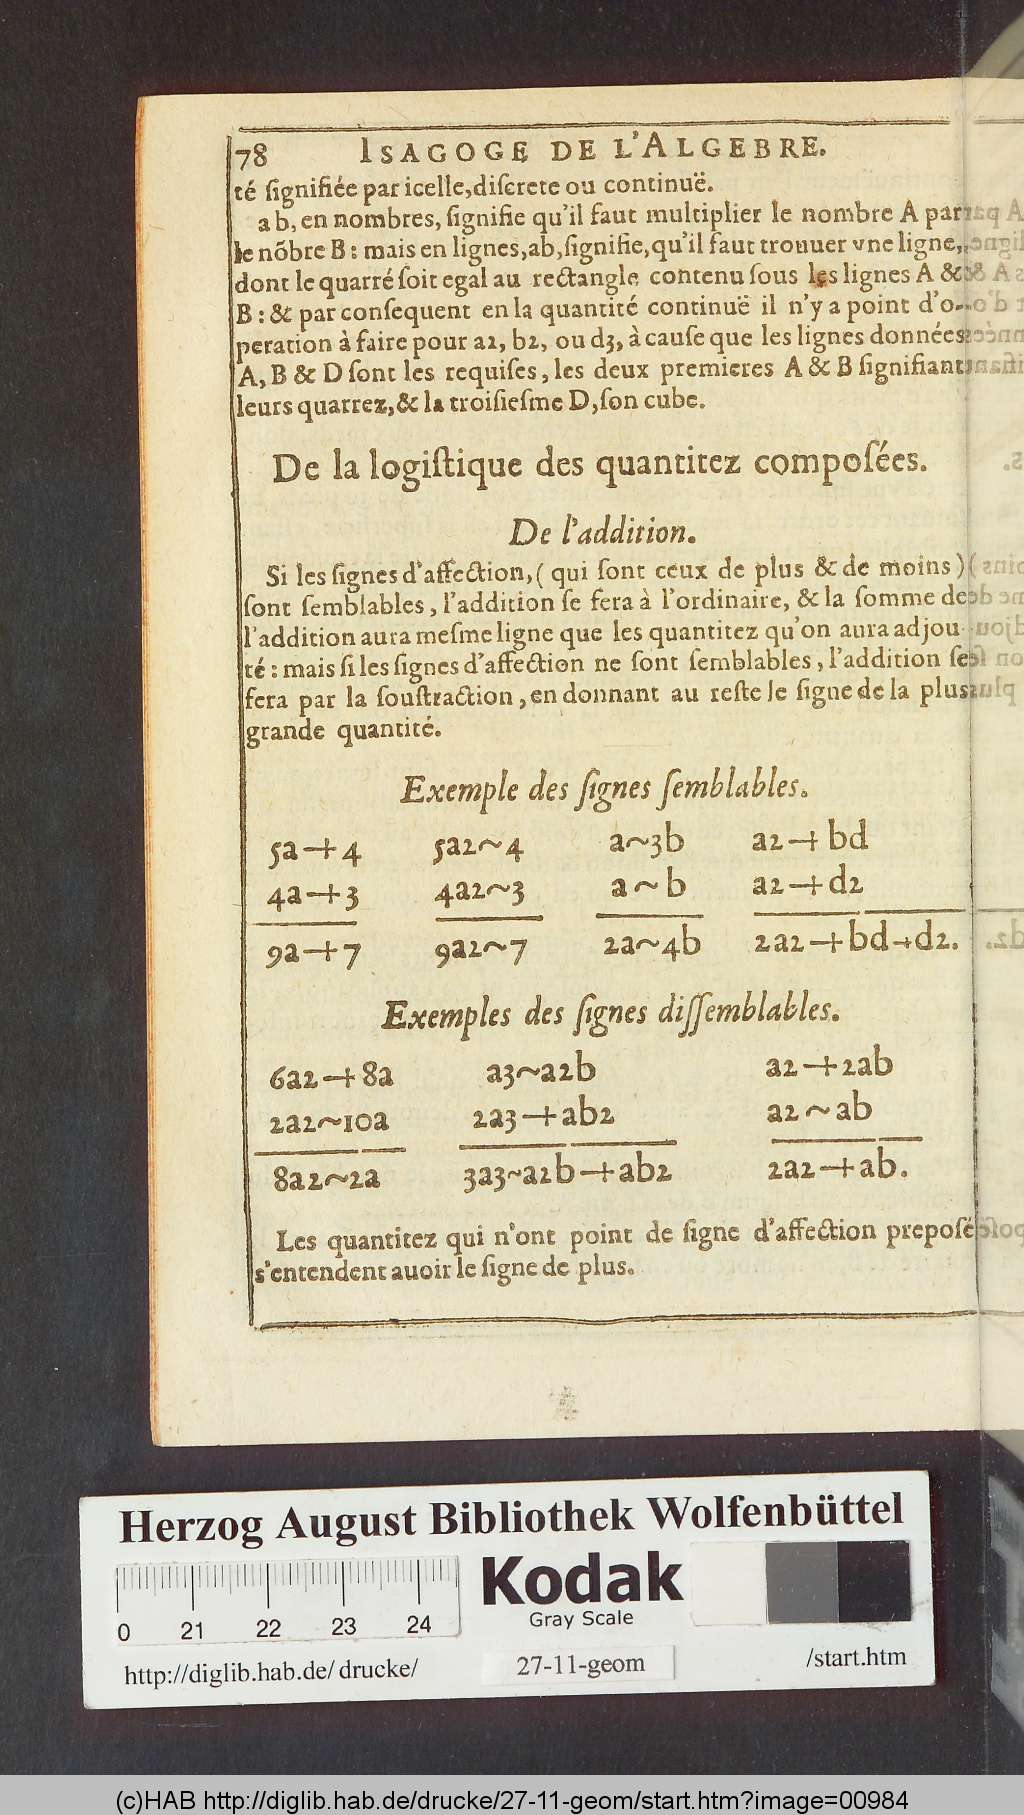 78 ISAGOGE DE L'ALGEBRE.
té ſignifiée par icelle, diſcrete ou continuë.
ab, en nombres, ſignifie qu'il faut multiplier le nombre A par
le nõbre B : mais en lignes, ab, ſignifie, qu'il faut trouuer vne ligne,
dont le quarré ſoit egal au rectangle contenu ſous les lignes A &
B : & par conſequent en la quantité continuë il n'y a point d'o-
peration à faire pour a2, b2, ou d3, à cauſe que les lignes données
A, B & D ſont les requiſes, les deux premieres A & B ſignifiant
leurs quarrez, & la troiſieſme D, ſon cube.
De la logiſtique des quantitez compoſées.
De l'addition.
Si les ſignes d'affection, ( qui ſont ceux de plus & de moins )
ſont ſemblables, l'addition ſe fera à l'ordinaire, & la ſomme de
l'addition aura meſme ligne que les quantitez qu'on aura adjou-
té : mais ſi les ſignes d'affection ne ſont ſemblables, l'addition ſe
fera par la ſouſtraction, en donnant au reſte le ſigne de la plus
grande quantité.
Exemple des ſignes ſemblables.
5a+4 5a2~4 a~3b a2+bd
4a+3 4a2~3 a~b a2+d2
9a+7 9a2~7 2a~4b 2a2+bd+d2.
Exemples des ſignes diſſemblables.
6a2+8a a3~a2b a2+2ab
2a2~10a 2a3+ab2 a2~ab
8a2~2a 3a3~a2b+ab2 2a2+ab.
Les quantitez qui n'ont point de ſigne d'affection prepoſé
s'entendent auoir le ſigne de plus.
Herzog August Bibliothek Wolfenbüttel
Kodak
Gray Scale
0 21 22 23 24
http://diglib.hab.de/drucke/ 27-11-geom /start.htm
(c)HAB http://diglib.hab.de/drucke/27-11-geom/start.htm?image=00984